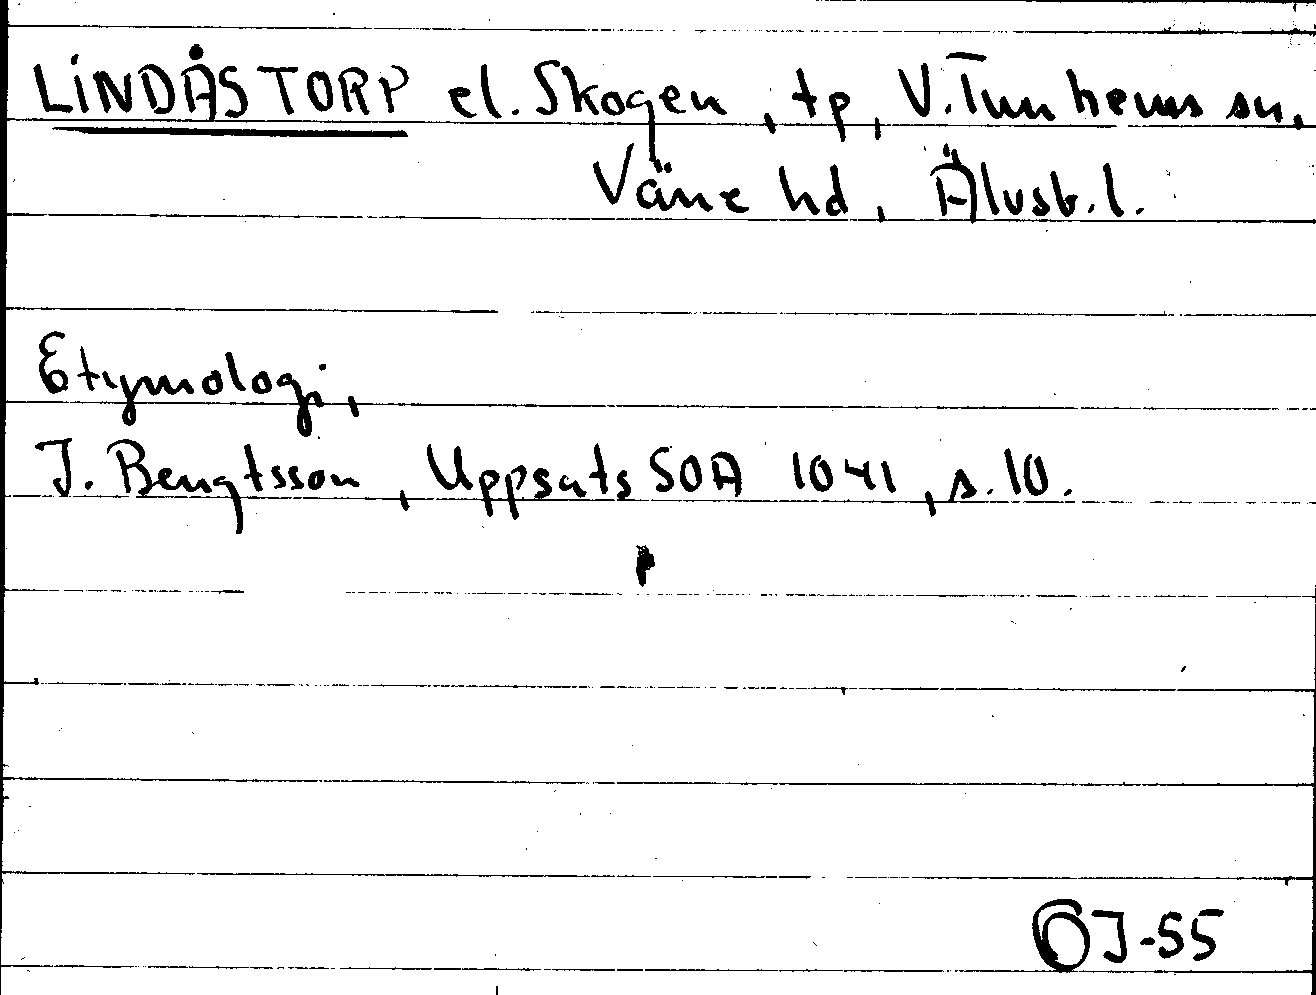 LINDÅSTORP el. Skogen, tp, V. Tunhems sn.
Väne hd, Älvsb. l.
Etymologi,
J. Bengtsson, Uppsats SOA 1041, s. 10.
ÖJ-55